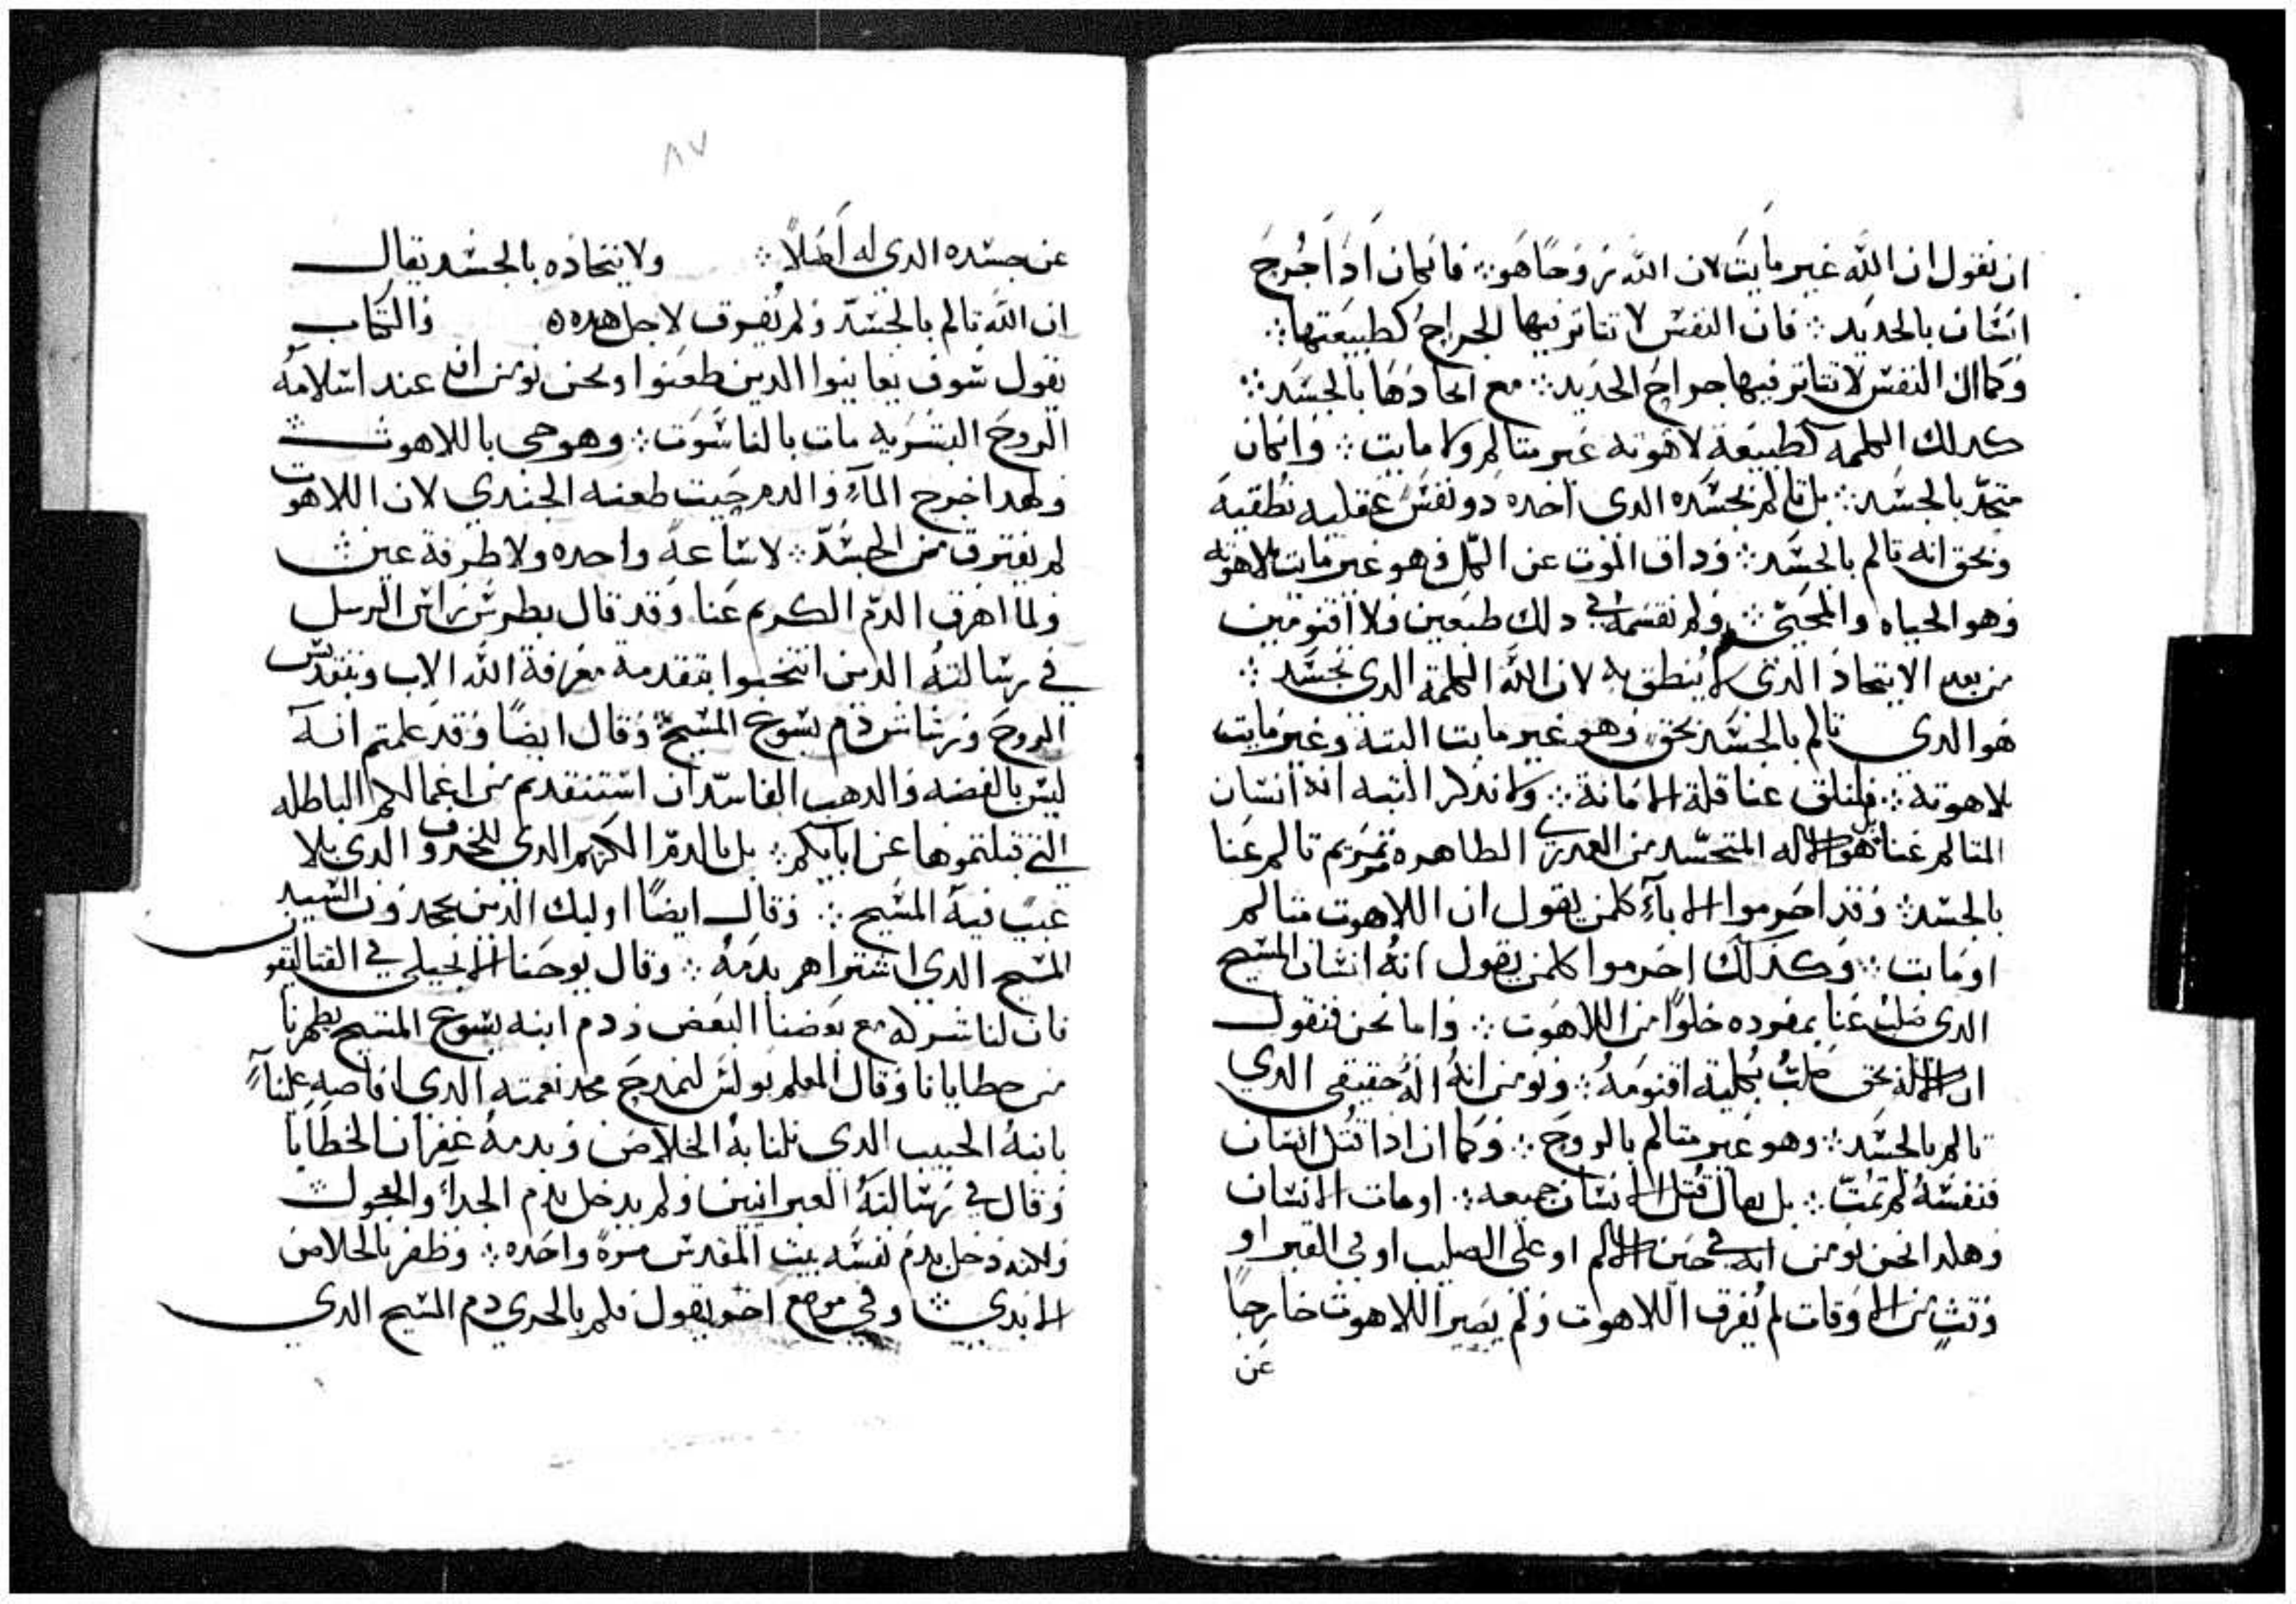 ان نقول ان الله غير مايت لان الله روحًا هو ⁘ فانكان ادا اجرح
انسان بالحديد ⁘ فان النفس لا تتاتر فيها الجراح كطبيعتها ⁘
وكما ان النفس لا تتاتر فيها جراح الحديد ⁘ مع اتحادها بالجسد ⁘
كدلك الكلمه كطبيعة لاهوته غير متالم ولا مايت ⁘ وانكان
متحدّ بالجسد ⁘ بل تالم بجسده الدى اخده دو نفس عقليه نطقيه
وبحق انه تالم بالجسد ⁘ وداق الموت عن الكل فهو غير مايت بلاهوته
وهو الحياه والمحيى ⁘ ولم نقسمه في دلك طبعين ولا اقنومين
من بعد الاتحاد الدى لا ينطق به لان الله الكلمة الدى تجسد ⁘
هو الدى تالم بالجسد بحق وهو غير مايت البتة وغير مايت
بلاهوتة ⁘ فلنلق عنا قلة الامانة ⁘ ولا ندكر البته انه انسان
المتالم عنا بل هو الاله المتجسد من العدرى الطاهره مريم تالم عنا
بالجسد ⁘ وقد احرموا الاباء كلمن يقول ان اللاهوت متالم
او مات ⁘ وكدلك احرموا كلمن يقول انه انسان المسيح
الدى صلب عنا بمفرده خلوًا من اللاهوت ⁘ واما نحن فنقول
ان الاله بحق صلب بكلية اقنومه ⁘ ونومن انه اله حقيقى الدي
تالم بالجسد ⁘ وهو غير متالم بالروح ⁘ وكما ان ادا قتل انسان
فنفسه لم تمت ⁘ بل يقال قتل الانسان جميعه ⁘ او مات الانسان
وهكدا نحن نومن انه في حين الالم او على الصليب او في القبر او
وقت من الاوقات لم يفرق اللاهوت ولم يصير اللاهوت خارجًا
عن
٨٧
عن جسده الدي له اصلًا ⁘ ولاتحاده بالجسد يقال
ان الله تالم بالجسد ولم يفرق لاجل هده ⁘ والكتاب
يقول سوف يعاينوا الدين طعنوا ونحن نومن انه عند اسلامه
الروح البشريه مات بالناسوت ⁘ وهو حى باللاهوت ⁘
ولهدا خرج الماء والدم حيت طعنه الجندي لان اللاهوت
لم يفترق من الجسد ⁘ لا ساعة واحده ولا طرفة عين ⁘
ولما اهرق الدم الكريم عنا وقد قال بطرس راس الرسل
في رسالته الدين انتخبوا بتقدمة معرفة الله الاب وبتقديس
الروح ورشاش دم يسوع المسيح ⁘ وقال ايضًا وقد علمتم انه
ليس بالفضه والدهب الفاسدان استنقدتم من اعمالكم الباطله
التي قبلتموها عن ابايكم ⁘ بل بالدم الكريم الدي للخروف الدى بلا
عيب فيه المسيح ⁘ وقال ايضًا اوليك الدين يجحدون السيد
المسيح الدي اشتراهم بدمه ⁘ وقال يوحنا الانجيلى في القتاليقون
فان لنا شركه مع بعضنا البعض ودم ابنه يسوع المسيح يطهرنا
من خطايانا وقال المعلم بولس لنمدح مجد نعمته الدى افاضه علينا
بابنه الحبيب الدي نلنا به الخلاص وبدمه غفران الخطايا
وقال في رسالته العبرانيين ولم يدخل بدم الجداء والعجول ⁘
ولكنه دخل بدم نفسه بيت المقدس مرة واحده ⁘ وظفر بالخلاص
الابدي ⁘ وفي موضع اخر يقول فكم بالحرى دم المسيح الدي